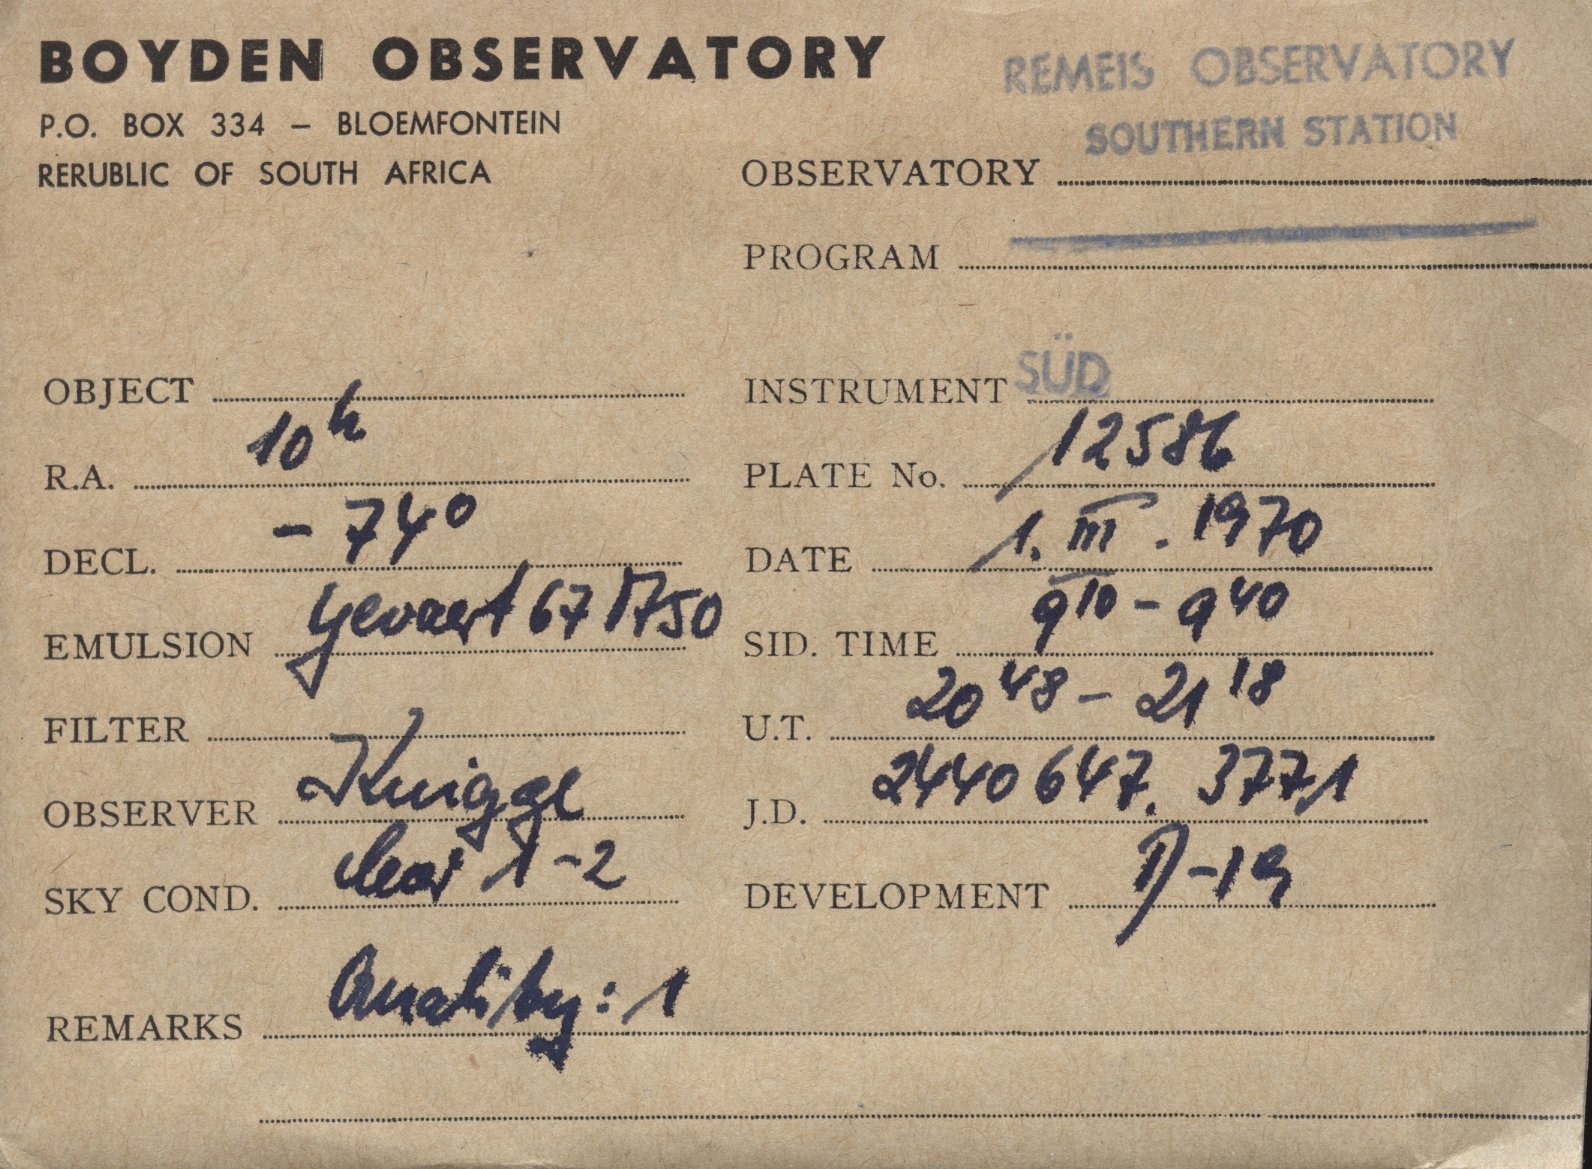 BOYDEN OBSERVATORY
P.O. BOX 334 – BLOEMFONTEIN
RERUBLIC OF SOUTH AFRICA
REMEIS OBSERVATORY
SOUTHERN STATION
OBSERVATORY
PROGRAM
OBJECT
R.A. 10h
DECL. - 74°
EMULSION Gevaert 67 A 50
FILTER
OBSERVER Knigge
SKY COND. clear 1-2
INSTRUMENT SÜD
PLATE No. 12586
DATE 1. III. 1970
SID. TIME 9 10 - 9 40
U.T. 20 48 - 21 18
J.D. 2440 647. 3771
DEVELOPMENT D-19
REMARKS Quality: 1